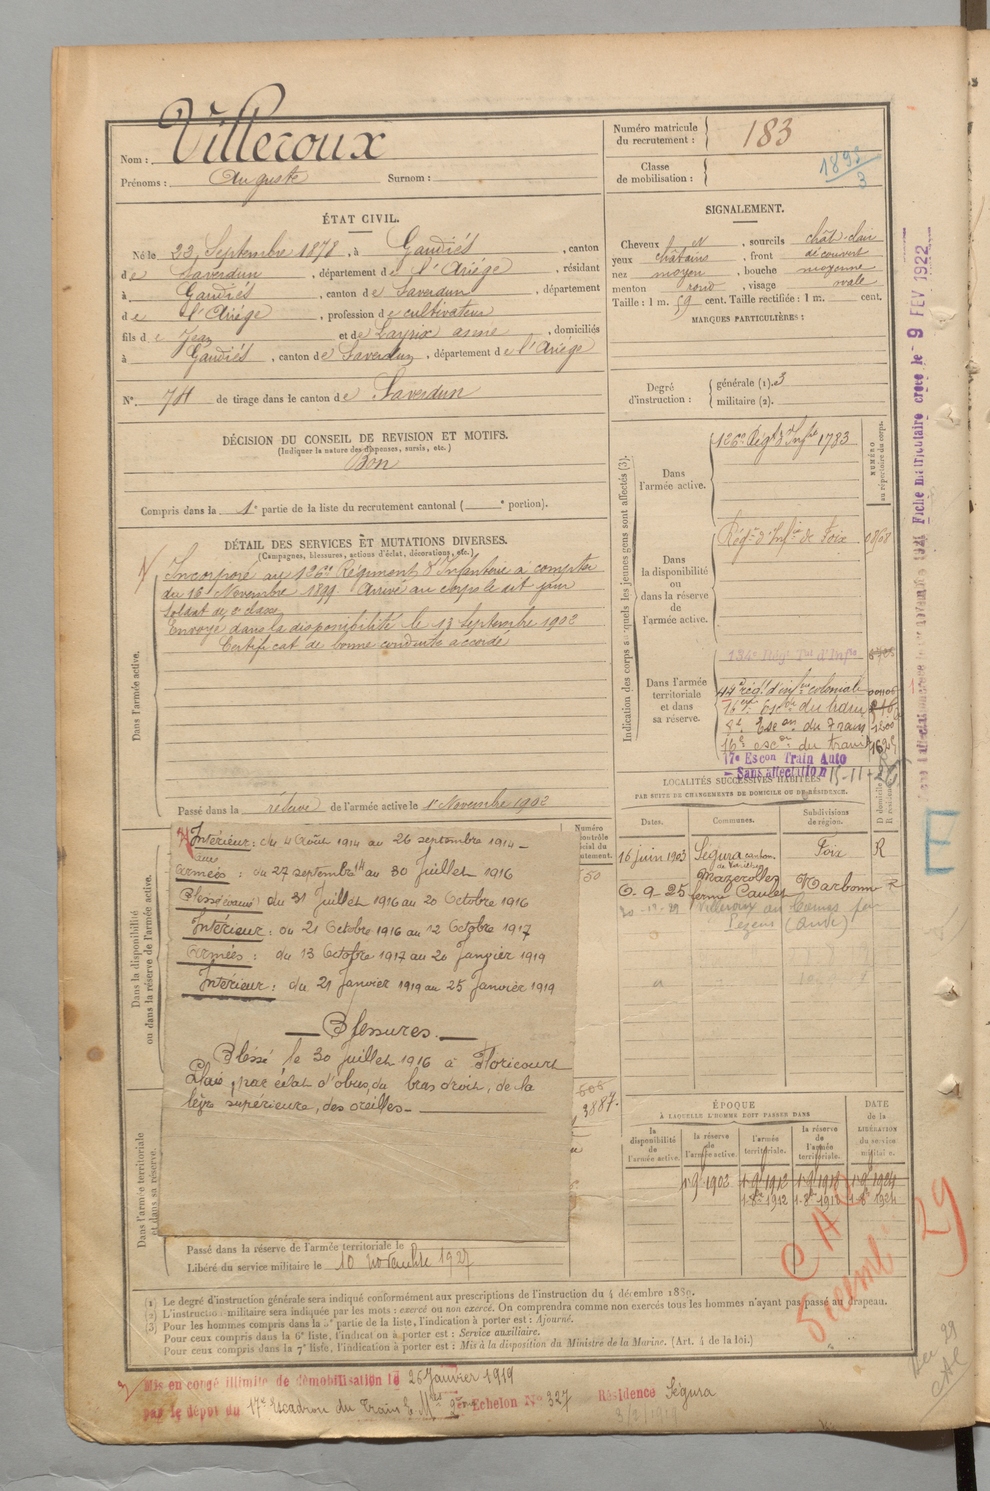 Nom : Villeroux
Prénoms : Auguste Surnom :
Numéro matricule du recrutement : 183
Classe de mobilisation :
ÉTAT CIVIL.
Né le 23 Septembre 1878, à Gaudiés, canton
de Saverdun, département de l'Ariége, résidant
à Gaudiés, canton de Saverdun, département
de l'Ariége, profession de cultivateur
fils de Jean et de Layrix anne, domiciliés
à Gaudiés, canton de Saverdun, département de l'Ariége
N° 74 de tirage dans le canton de Saverdun
DÉCISION DU CONSEIL DE REVISION ET MOTIFS.
(Indiquer la nature des dispenses, sursis, etc.)
Bon
Compris dans la 1e partie de la liste du recrutement cantonal ( e portion).
DÉTAIL DES SERVICES ET MUTATIONS DIVERSES.
(Campagnes, blessures, actions d'éclat, décorations, etc.)
Dans l'armée active.
Incorporé au 126e Régiment d'Infanterie à compter
du 16 Novembre 1899. Arrivé au corps le dit jour
Soldat de 2e classe
Envoyé dans la disponibilité le 13 Septembre 1902
Certificat de bonne conduite accordé
Passé dans la réserve de l'armée active le 1er Novembre 1902
Dans la disponibilité
ou dans la réserve de l'armée active.
Intérieur : du 4 Août 1914 au 26 septembre 1914 –
Armées : du 27 septembre 14 au 30 Juillet 1916
Blessé évacué du 31 Juillet 1916 au 20 Octobre 1916
Intérieur : du 21 Octobre 1916 au 12 Octobre 1917
Armées : du 13 Octobre 1917 au 20 Janvier 1919
Intérieur : du 21 Janvier 1919 au 25 Janvier 1919
Blessures.
Blessé le 30 juillet 1916 à
Plaie, par éclat d'obus, du bras droit, de la
lèvre supérieure, des oreilles –
3887.
Dans l'armée territoriale
et dans sa réserve.
Passé dans la réserve de l'armée territoriale le
Libéré du service militaire le 10 novembre 1927
SIGNALEMENT.
Cheveux N, sourcils chât-clair
yeux châtains, front découvert
nez moyen, bouche moyenne
menton rond, visage ovale
Taille : 1 m. 59 cent. Taille rectifiée : 1 m. cent.
MARQUES PARTICULIÈRES :
Degré d'instruction : générale (1). 3
militaire (2).
Indication des corps auxquels les jeunes gens sont affectés (3).
NUMÉRO au répertoire du corps.
Dans l'armée active.
126e Régt d'Infie 1783
Dans la disponibilité ou dans la réserve de l'armée active.
Régt d'Infie de Foix
Dans l'armée territoriale et dans sa réserve.
44e rég. d'infie coloniale
16e Escon du train
16e escon du train
17e Escon Train Auto
– Sans affectation 15-11-26
LOCALITÉS SUCCESSIVES HABITÉES
PAR SUITE DE CHANGEMENTS DE DOMICILE OU DE RÉSIDENCE.
Dates. Communes. Subdivisions de région. D domicile R résidence
16 juin 1903 Ségura canton de Varilhes Foix R
6.9.25 Mazerolles ferme Caulet Narbonne R
Pezens (Aude)
ÉPOQUE
À LAQUELLE L'HOMME DOIT PASSER DANS
DATE de la LIBÉRATION du service militaire.
la disponibilité de l'armée active. la réserve de l'armée active. l'armée territoriale. la réserve de l'armée territoriale.
1-9-1902 1-9-1912 1-9-1918 1-9-1924
1-8-1912 1-8-1918 1-8-1924
(1) Le degré d'instruction générale sera indiqué conformément aux prescriptions de l'instruction du 4 décembre 1889.
(2) L'instruction militaire sera indiquée par les mots : exercé ou non exercé. On comprendra comme non exercés tous les hommes n'ayant pas passé au drapeau.
(3) Pour les hommes compris dans la 5e partie de la liste, l'indication à porter est : Ajourné.
Pour ceux compris dans la 6e liste, l'indication à porter est : Service auxiliaire.
Pour ceux compris dans la 7e liste, l'indication à porter est : Mis à la disposition du Ministre de la Marine. (Art. 4 de la loi.)
Mis en congé illimité de démobilisation le 26 Janvier 1919
par le dépôt du 17e Escadron du Train Echelon No 327 Résidence Ségura
Fiche matriculaire créée le 9 FEV 1922
29